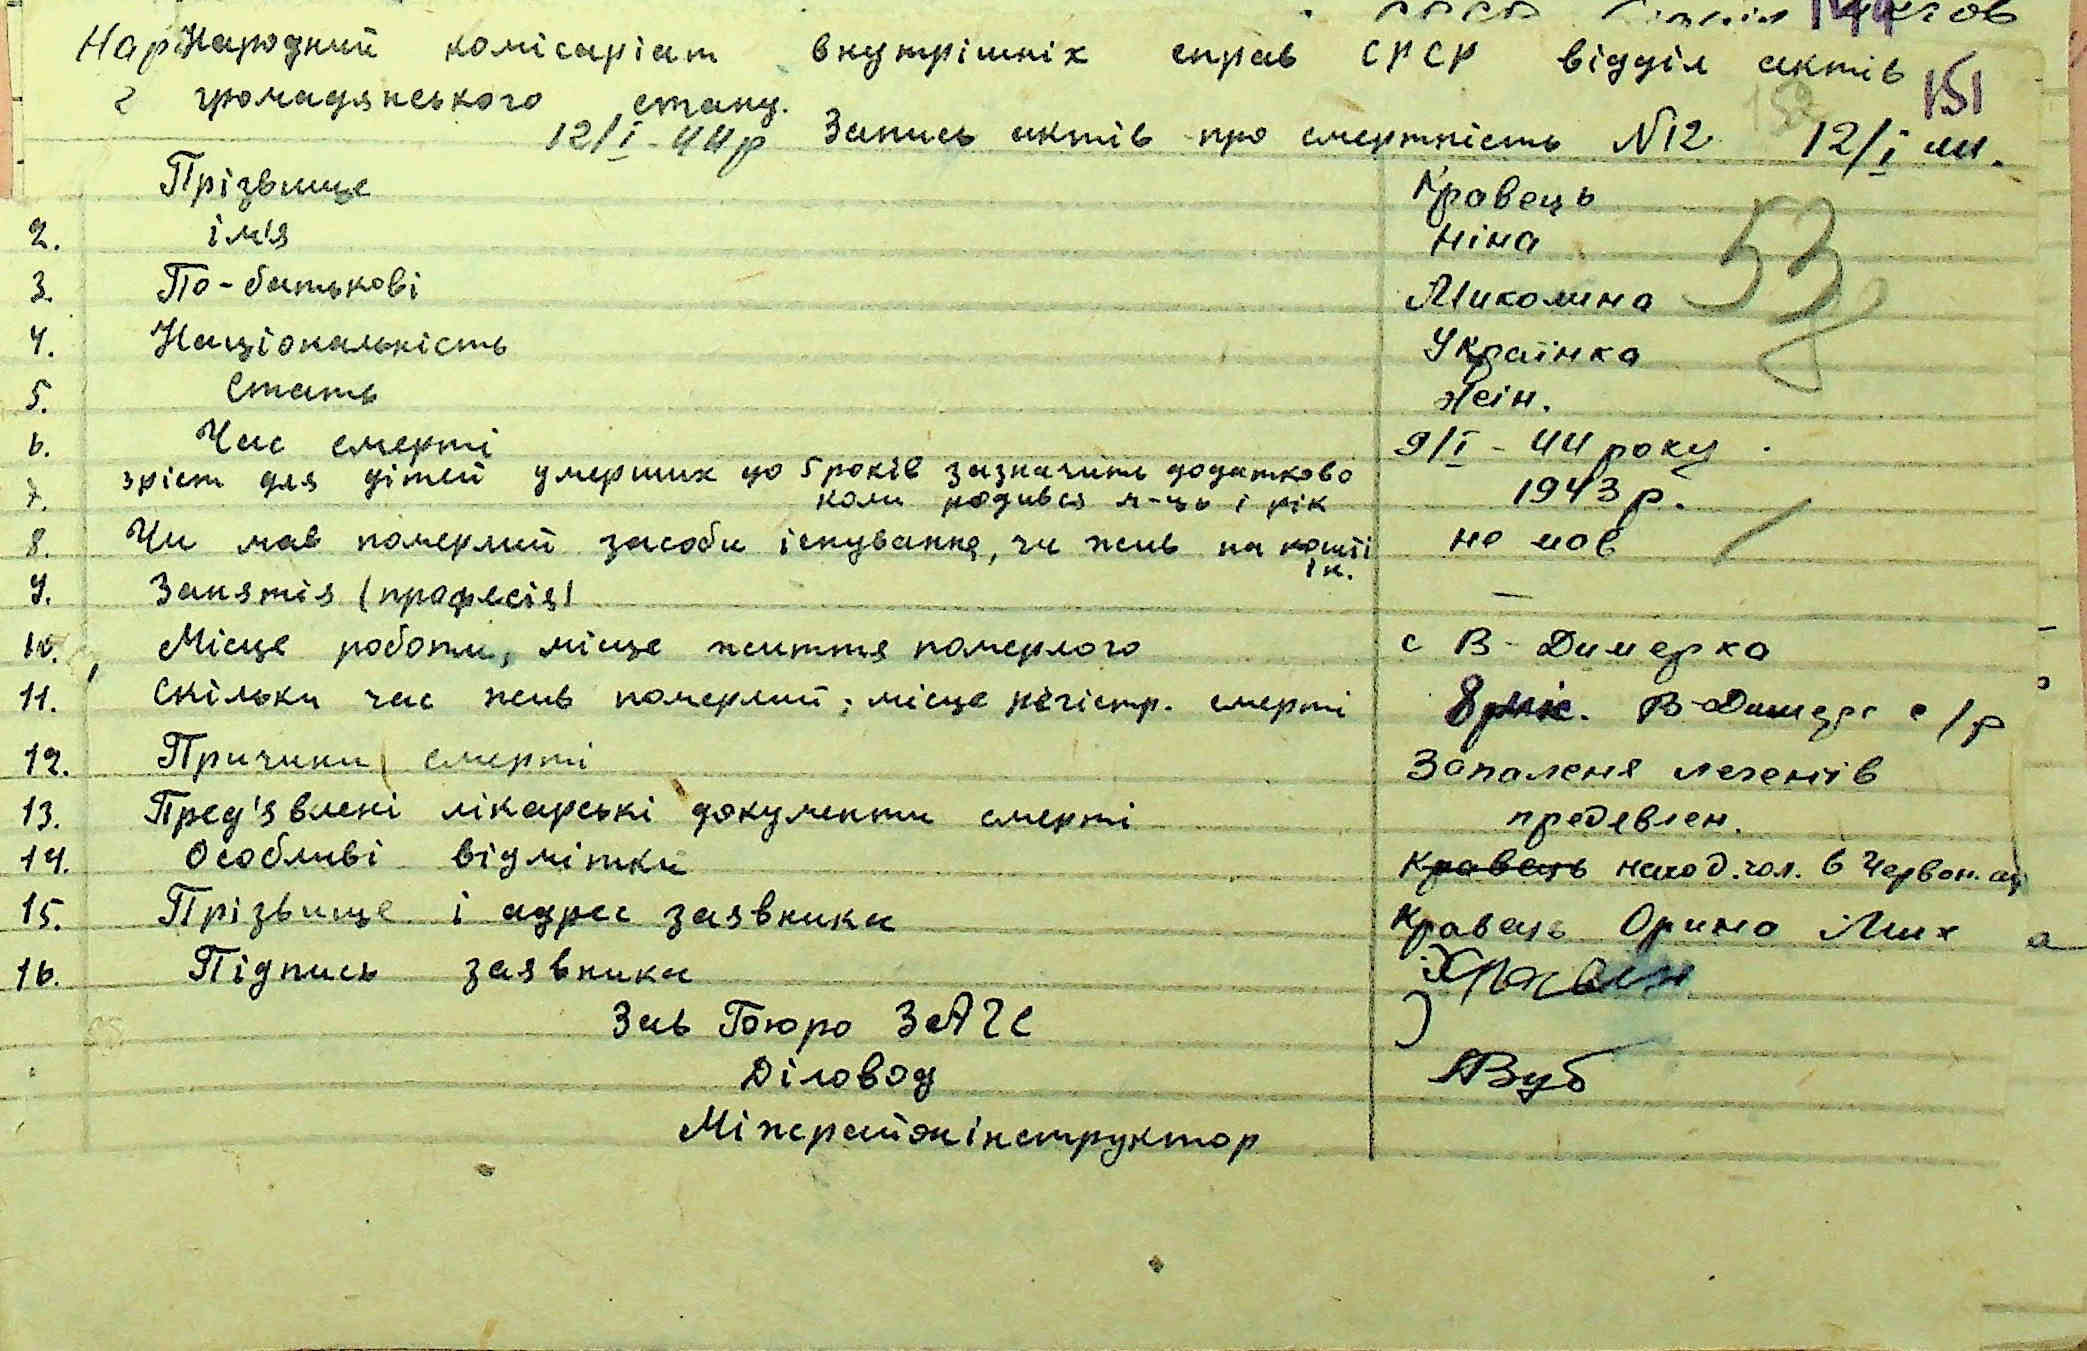 Народний комісаріат внутрішніх справ СРСР відділ актів
громадянського стану.
151
12/I-44р Запись актів про смертність N12 12/I
Прізвище Кравець
2. ім'я Ніна
3. По-батькові Миколина
4. Національність Українка
5. Стать
6. Час смерті 9/I-44 року
7. зріст для дітей умерших до 5 років зазначить додатково
коли родився м-ць і рік 1943 р.
8. Чи мав померлий засоби існування, чи жив на кошті
ін. не мав
9. Занятія (професія) —
10. Місце роботи, місце життя померлого с В-Димерка
11. Скільки час жив померлий; місце регістр. смерті В-Димерс с/р
12. Причини смерті Запаленя легенів
13. Пред'явлені лікарські документи смерті предявлен.
14. Особливі відмітки Кравець наход. чол. в Червон. ар
15. Прізвище і адрес заявника Кравець Орина Мих
16. Підпись заявника
Зав Бюро ЗАГС
Діловод
Міжрайонінструктор
53